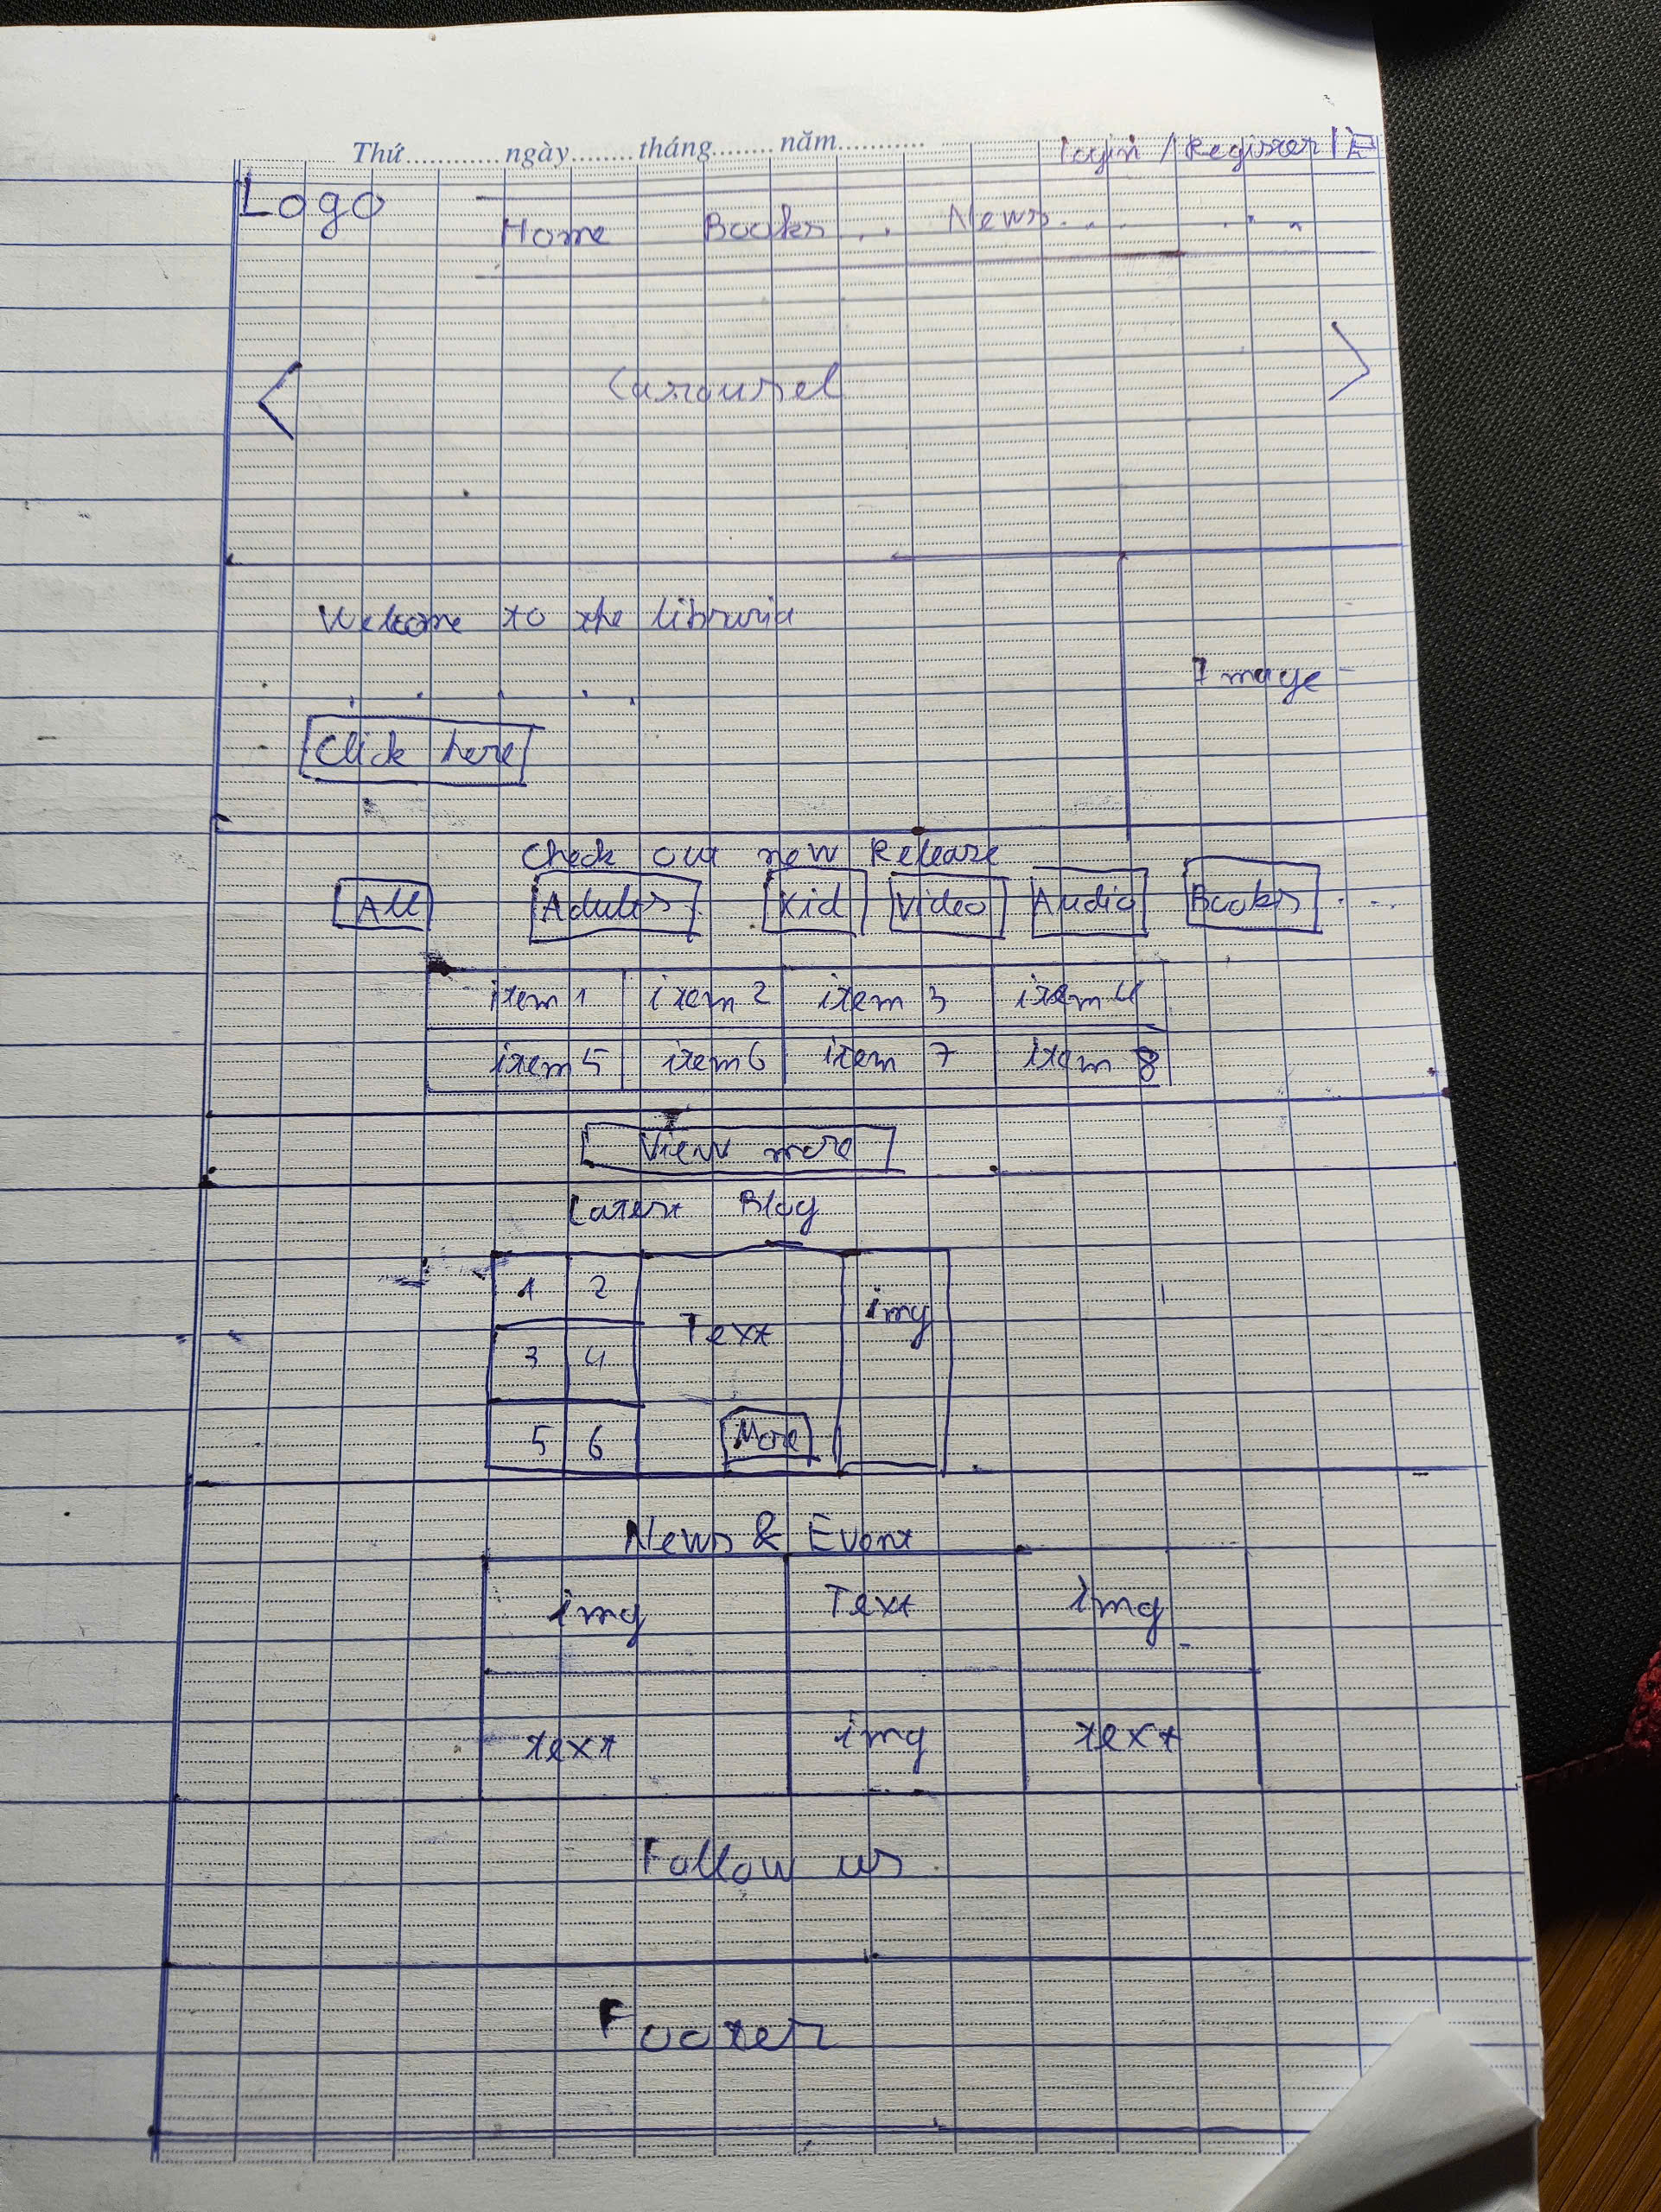 Thứ............ngày........tháng........năm...........
Login / Register |
Logo
Home Books... News... . . .
< Carousel >
Welcome to the libraria
. . . . .
Image
Click here
Check out new Release
All Adults Kid Video Audio Books ....
item 1 item 2 item 3 item 4
item 5 item 6 item 7 item 8
View more
Latest Blog
1 2 Text img
3 4
5 6 More
News & Event
img Text img
text img text
Follow us
Footer